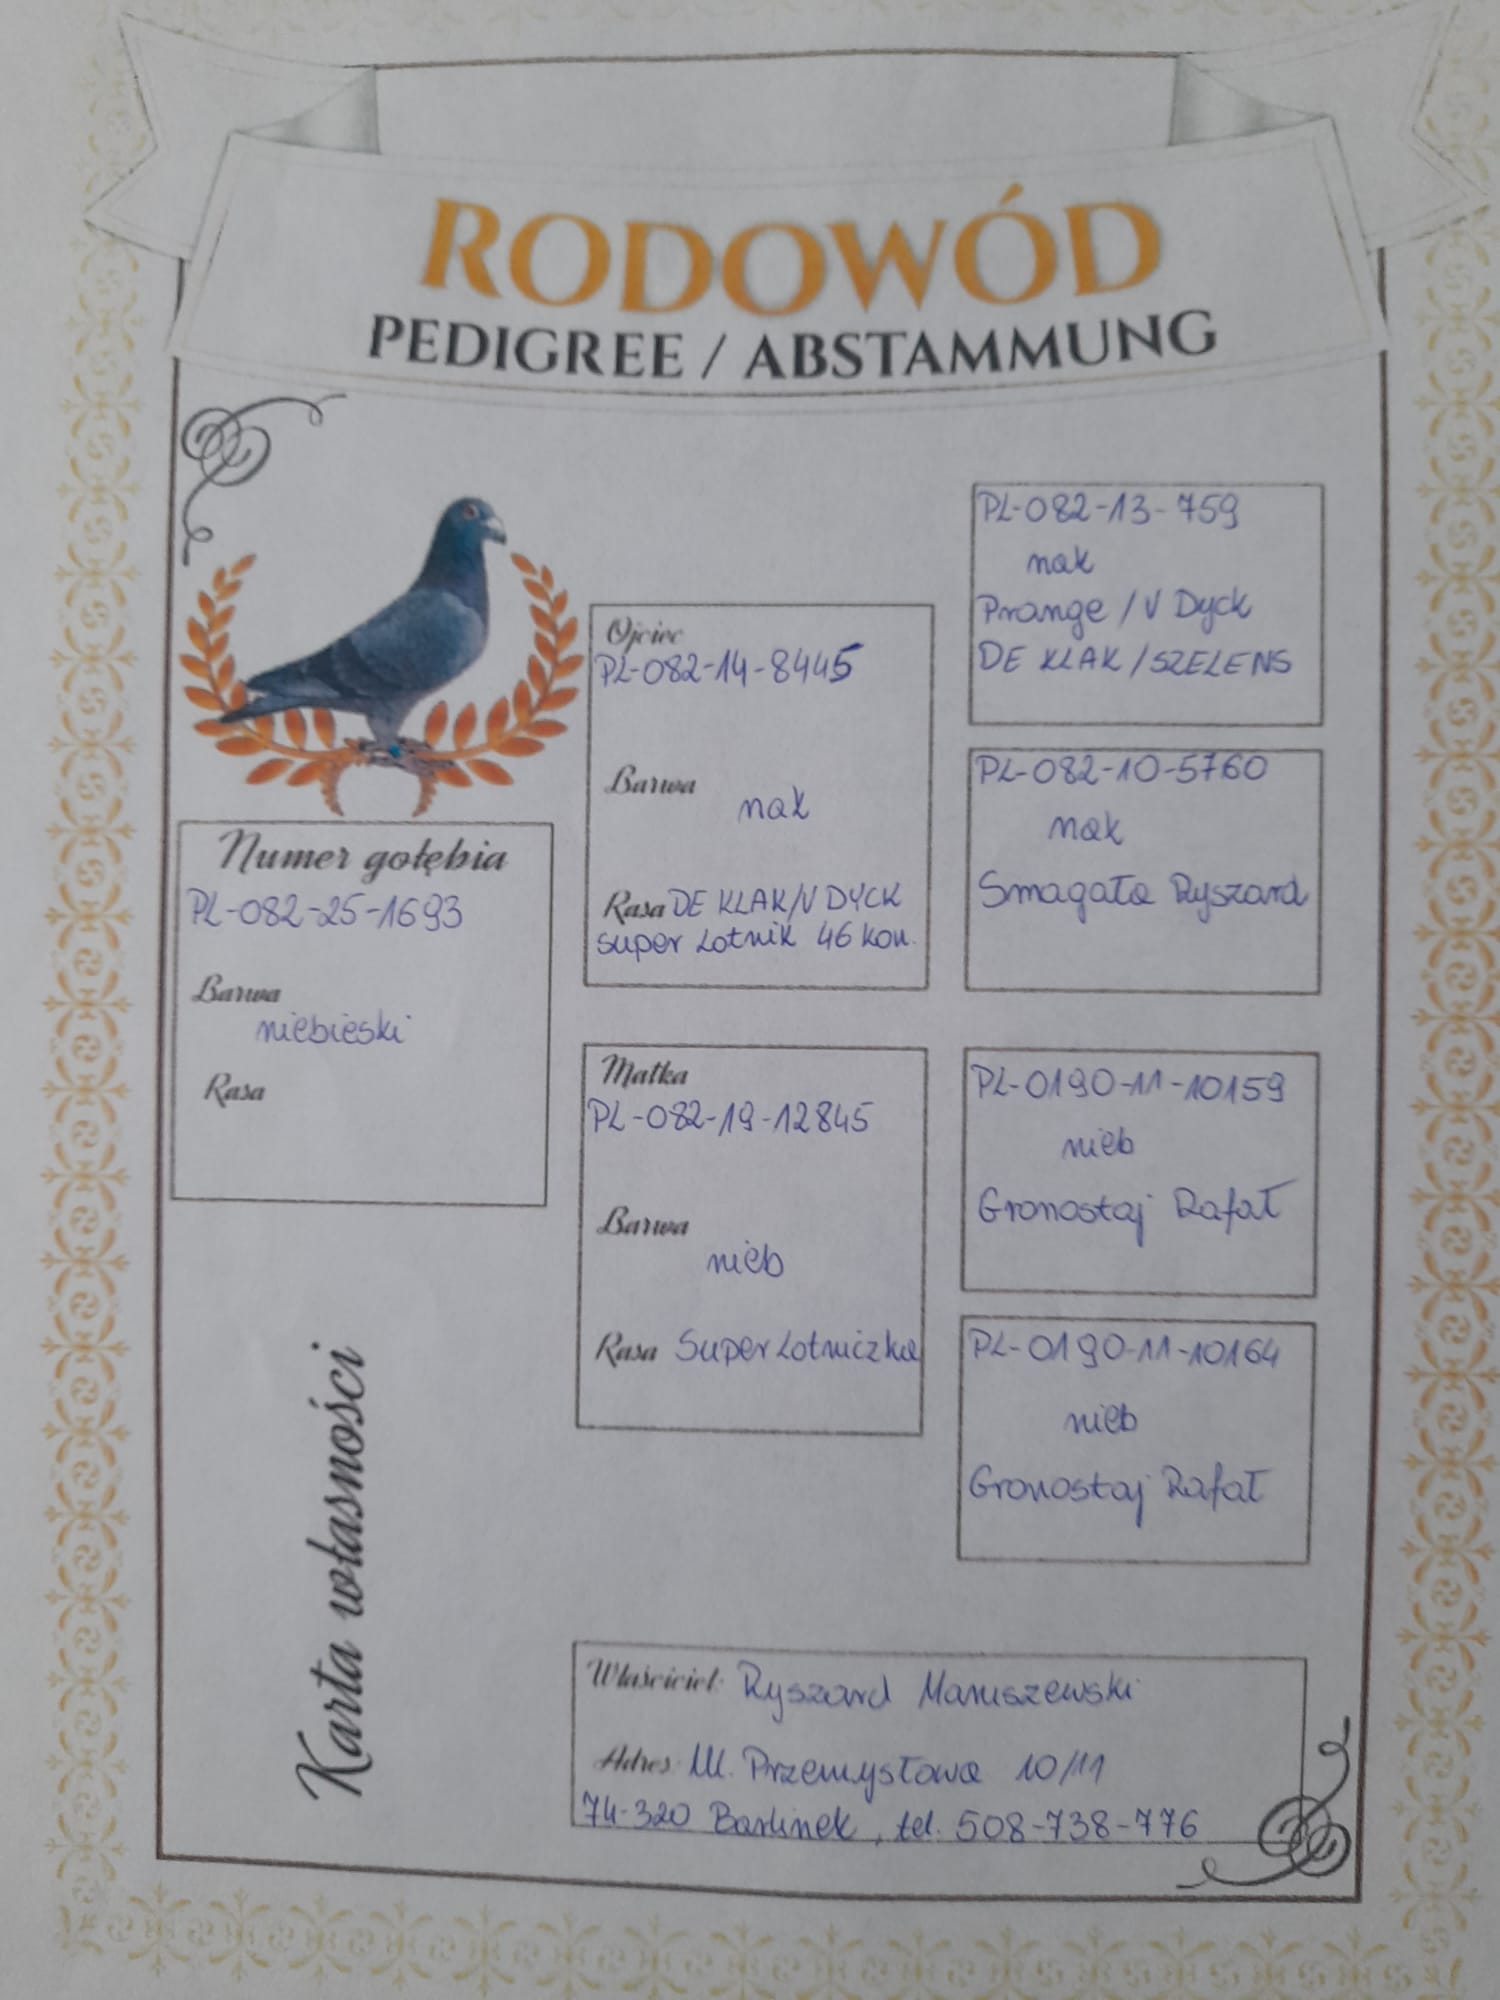 RODOWÓD
PEDIGREE / ABSTAMMUNG
Numer gołębia
PL-082-25-1693
Barwa
niebieski
Rasa
Ojciec
PL-082-14-8445
Barwa
nak
Rasa DE KLAK/V DYCK
super Lotnik 46 kon.
Matka
PL-082-19-12845
Barwa
nieb
Rasa Super Lotniczka
PL-082-13-759
nak
Prange / V Dyck
DE KLAK / SZELENS
PL-082-10-5760
nak
Smagała Ryszard
PL-0190-11-10159
nieb
Gronostaj Rafał
PL-0190-11-10164
nieb
Gronostaj Rafał
Karta własności
Właściciel: Ryszard Maruszewski
Adres: Ul. Przemysłowa 10/11
74-320 Barlinek, tel. 508-738-776